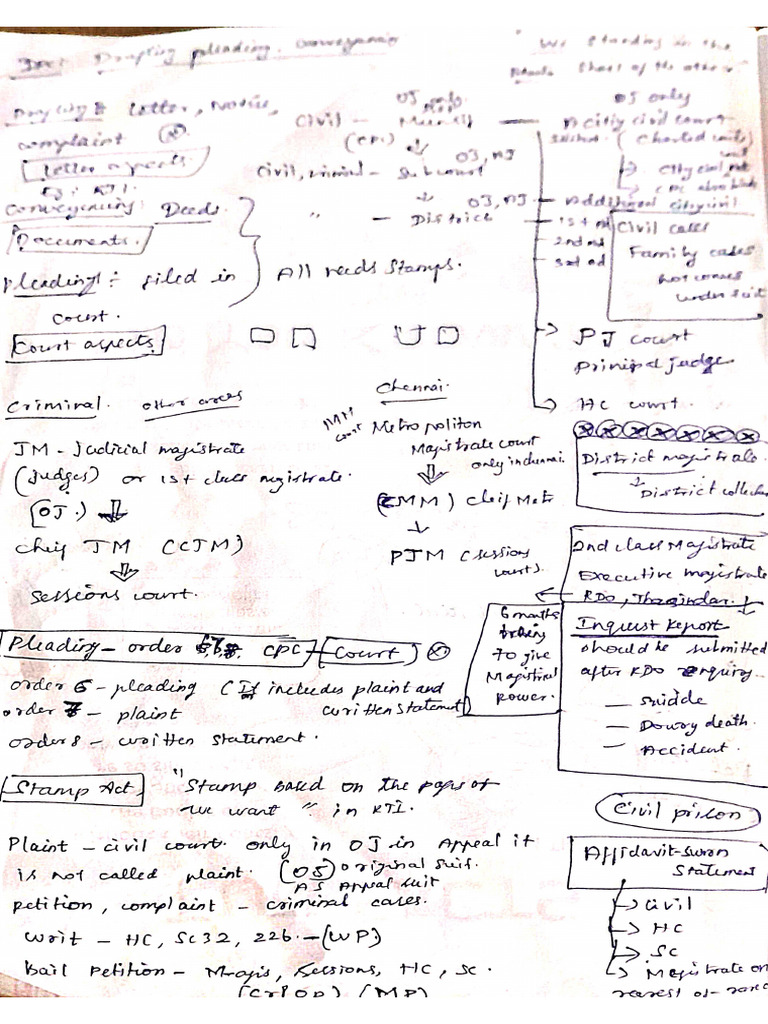 Drafting pleading. conveyancing
" We standing in the
Share of the others "
letter, Notice,
complaint
Letter aspects.
Conveyancing: Deeds.
Documents.
Pleading :- filed in
court.
Court aspects
All needs stamps.
Civil - Munsif
OJ only
(CPC)
Civil, criminal - Sub court
OJ, AJ
" - District
OJ, AJ
OJ only
City civil court
(Charted
- Additional city civil
1st ad
2nd ad
3rd ad
Civil cases
Family cases
not comes
under suit
PJ court
Prinipal judge
HC court.
Criminal. other areas
JM - Judicial magistrate
(judges) or 1st class magistrate.
(OJ.)
cheif JM (CJM)
Sessions court.
Chennai.
MM court
Metropoliton
Magistrate court
only in chennai.
(CMM) cheif Metr
PJM (sessions
courts.
District magistrate.
District collector
2nd class Magistrate
Executive magistrate
RDO, Thasindar.
6 months
to give
Magistrial
power.
Inquest Report
should be submitted
after RDO enquiry.
- Suidde
- Dowry death.
- Accident.
Pleading - order 6,7,8. CPC - (Court)
order 6 - pleading (It includes plaint and
written statement)
order 7 - plaint
order 8 - written statement.
Stamp Act,
" Stamp based on the pages of
we want " in RTI.
Plaint - civil court. only in OJ in Appeal it
is not called plaint. (OS) original suit.
AS Appeal suit
petition, complaint - criminal cases.
Writ - HC, SC 32, 226. - (WP)
Bail Petition - Magis, Sessions, HC, SC.
(Crl OP) (MP)
Civil prison
Affidavit - Sworn
Statement
Civil
HC
SC
Magistrate on
rarest of-rare